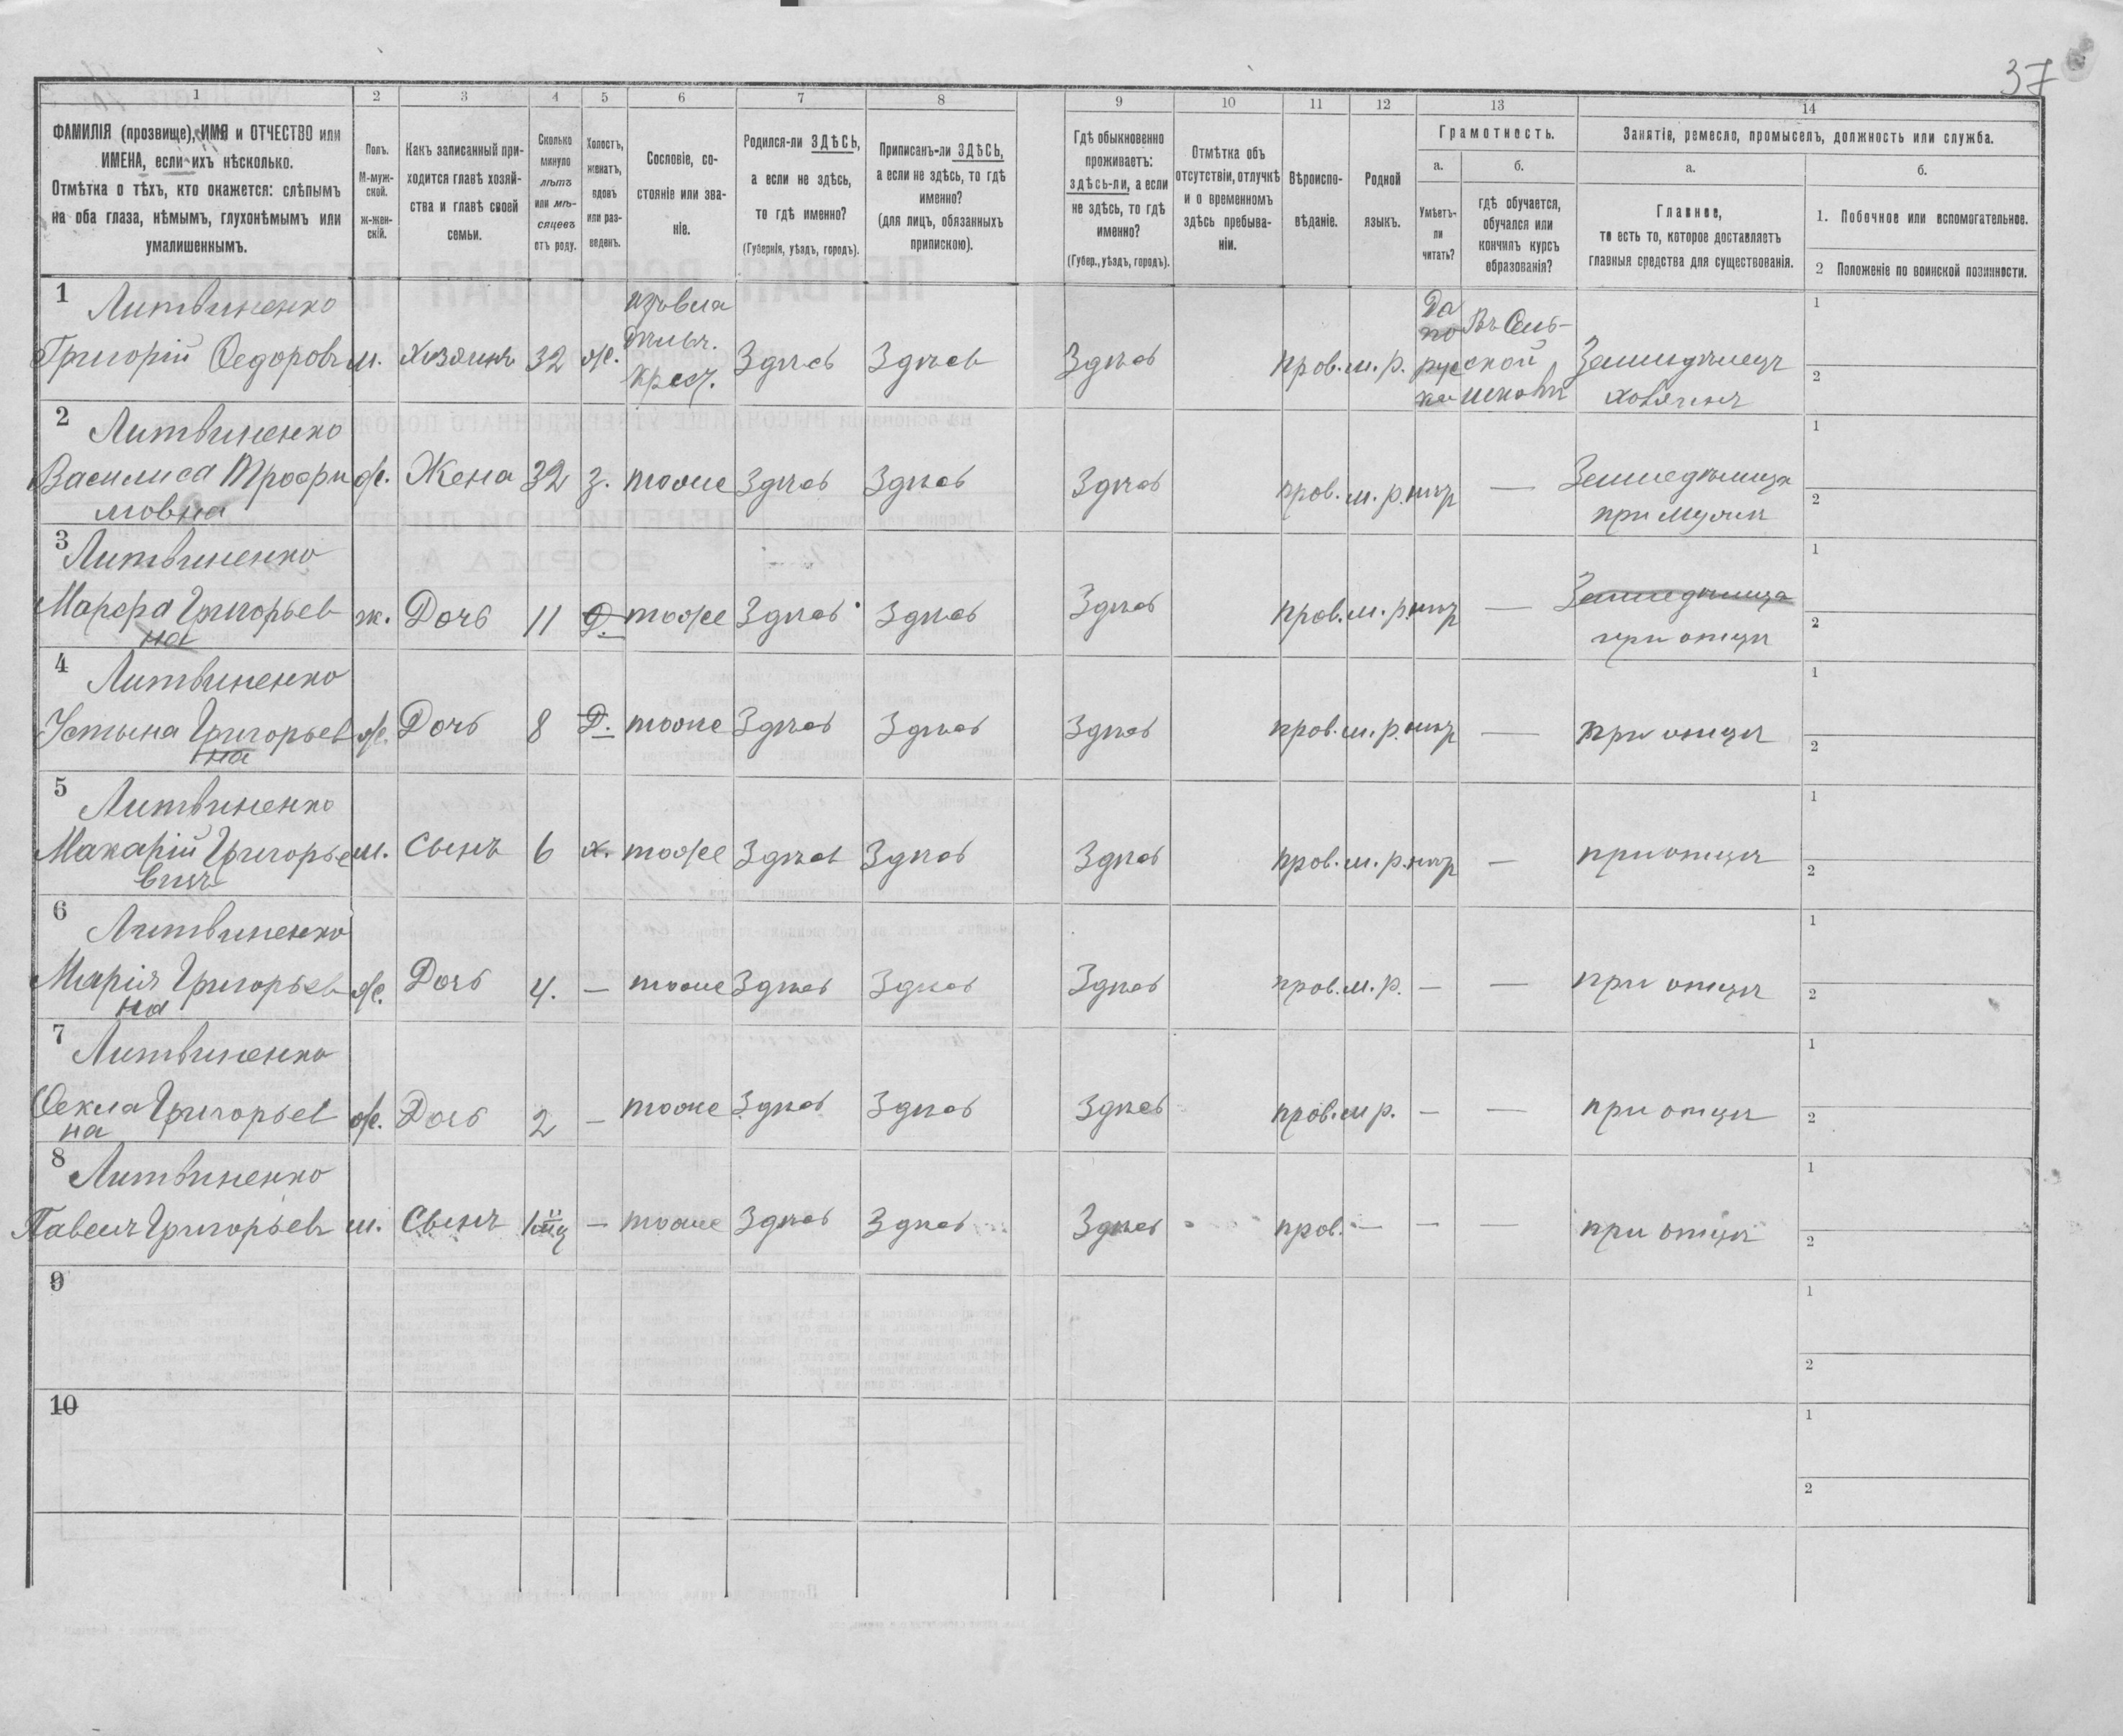 37
1 2 3 4 5 6 7 8 9 10 11 12 13 14
ФАМИЛІЯ (прозвище), ИМЯ и ОТЧЕСТВО или
ИМЕНА, если ихъ нѣсколько.
Отмѣтка о тѣхъ, кто окажется: слѣпымъ
на оба глаза, нѣмымъ, глухонѣмымъ или
умалишеннымъ.
Полъ.
М-муж-
ской.
Ж-жен-
скій.
Какъ записанный при-
ходится главѣ хозяй-
ства и главѣ своей
семьи.
Сколько
минуло
лѣтъ
или мѣ-
сяцевъ
отъ роду.
Холостъ,
женатъ,
вдовъ
или раз-
веденъ.
Сословіе, со-
стояніе или зва-
ніе.
Родился-ли ЗДѢСЬ,
а если не здѣсь,
то гдѣ именно?
(Губернія, уѣздъ, городъ).
Приписанъ-ли ЗДѢСЬ,
а если не здѣсь, то гдѣ
именно?
(для лицъ, обязанныхъ
припискою).
Гдѣ обыкновенно
проживаетъ:
здѣсь-ли, а если
не здѣсь, то гдѣ
именно?
(Губер., уѣздъ, городъ).
Отмѣтка объ
отсутствіи, отлучкѣ
и о временномъ
здѣсь пребыва-
ніи.
Вѣроиспо-
вѣданіе.
Родной
языкъ.
Грамотность.
а.
Умѣетъ-
ли
читать?
б.
гдѣ обучается,
обучался или
кончилъ курсъ
образованія?
Занятіе, ремесло, промыселъ, должность или служба.
а.
Главное,
то есть то, которое доставляетъ
главныя средства для существованія.
б.
1. Побочное или вспомогательное.
2 Положеніе по воинской повинности.
1 Литвиненко изъвла Да 1
по Въ Сель-
Григорій Ѳедоровъ м. хозяинъ 32 ж. дѣльч. Здѣсь Здѣсь Здѣсь пров. м. р. рус ской Земледѣлецъ 2
крест. ки школѣ хозяинъ
2 Литвиненко 1
Василиса Трофи ж. Жена 32 з. тоже Здѣсь Здѣсь Здѣсь пров. м. р. нѣт — Земледѣлица 2
мовна при мужѣ
3 Литвиненко 1
Марфа Григорьев ж. Дочь 11 Д. тоже Здѣсь Здѣсь Здѣсь пров. м. р. нѣт — Земледѣлица 2
на при отцѣ
4 Литвиненко 1
Устина Григорьев ж. Дочь 8 Д. тоже Здѣсь Здѣсь Здѣсь пров. м. р. нѣт — при отцѣ 2
на
5 Литвиненко 1
Макарій Григорье м. сынъ 6 х. тоже Здѣсь Здѣсь Здѣсь пров. м. р. нѣт — при отцѣ 2
вичъ
6 Литвиненко 1
Марія Григорьев ж. Дочь 4. — тоже Здѣсь Здѣсь Здѣсь пров. м. р. — — при отцѣ 2
на
7 Литвиненко 1
Ѳекла Григорьев ж. Дочь 2 — тоже Здѣсь Здѣсь Здѣсь пров. м р. — — при отцѣ 2
на
8 Литвиненко 1
Павелъ Григорьевъ м. Сынъ — тоже Здѣсь Здѣсь Здѣсь пров. — — — при отцѣ 2
9 1
2
10 1
2